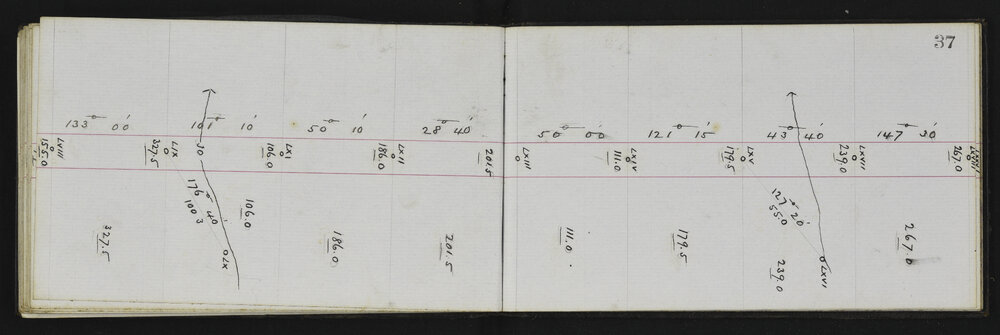 37
133° 00'
101° 10'
50° 10'
28° 40'
50° 00'
121° 15'
43° 40'
147° 30'
LVIII
155.0
LIX
327.5
30
LXI
106.0
LXII
186.0
201.5
LXIII
LXIV
111.0
LXV
179.5
LXVII
239.0
267.0
176° 40'
100 3
106.0
LX
327.5
186.0
201.5
111.0
179.5
127° 20'
55.0
239.0
LXVI
267.0